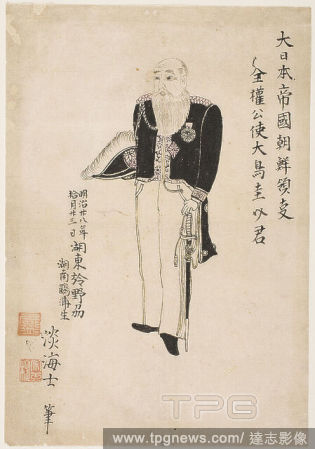 大日本帝國朝鮮領支
全權公使大鳥圭介君
明治廿八年
拾月廿三日
湖東於野
湖南
淡海士
筆
TPG
www.tpgnews.com/達志影像